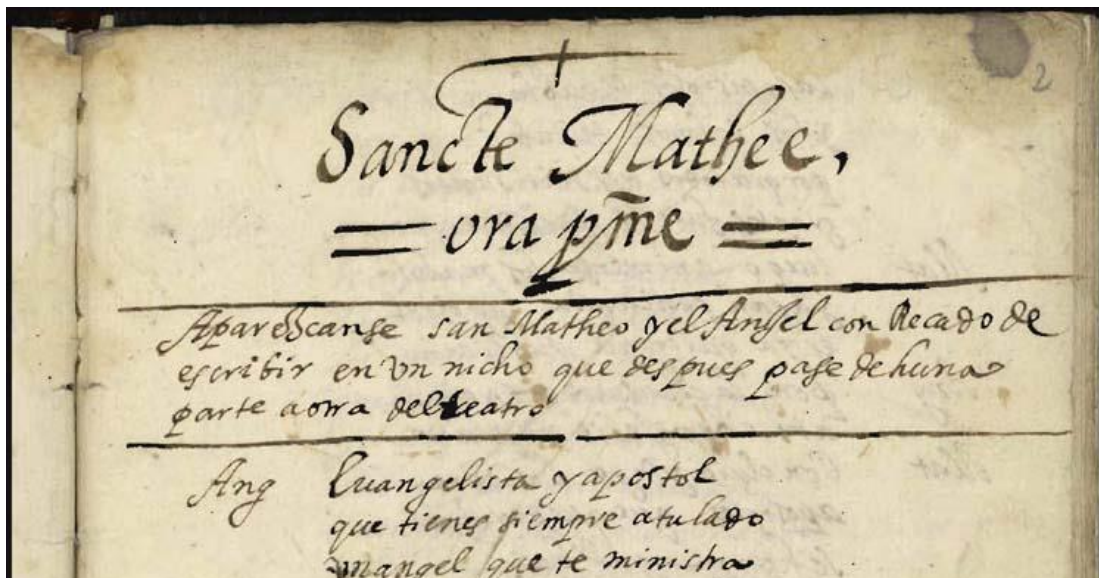 2
Sancte Mathee,
ora p̃me
Aparezcanse san Matheo y el Angel con Recado de
escribir en vn nicho que despues pase de huna
parte a otra del teatro
Ang Euangelista y apostol
que tienes siempre a tu lado
vn angel que te ministra